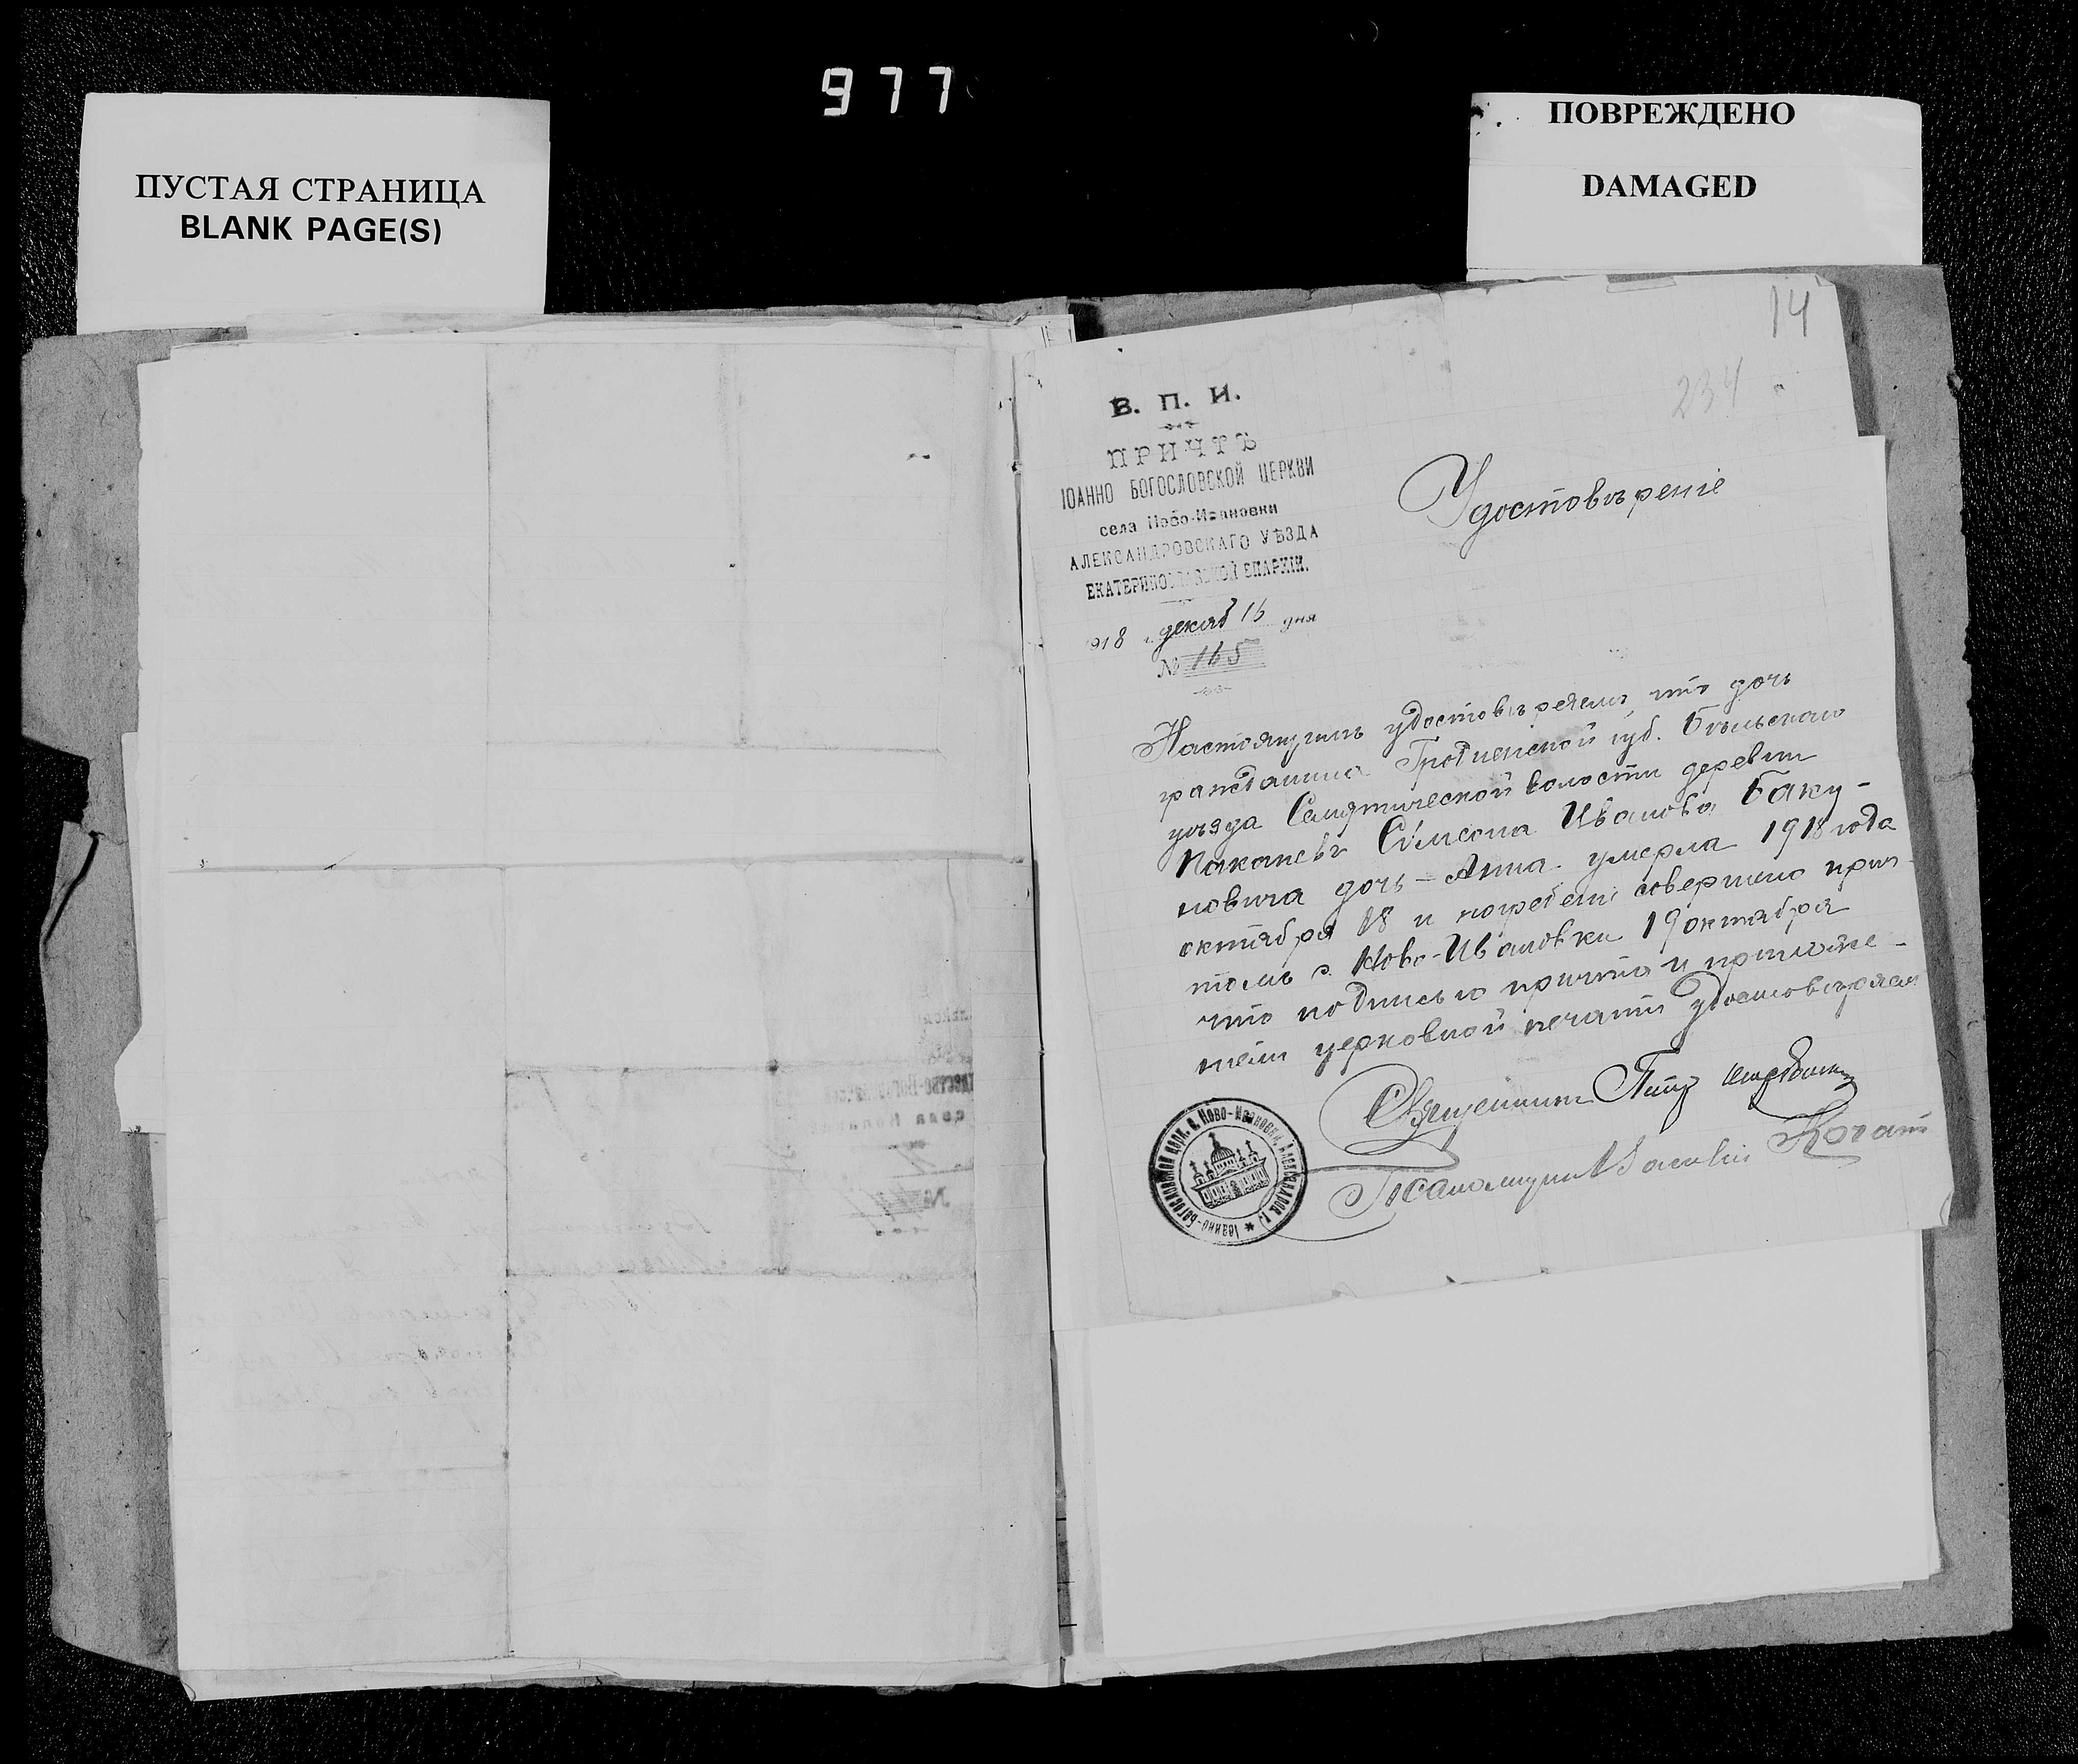 977
ПУСТАЯ СТРАНИЦА
BLANK PAGE(S)
ПОВРЕЖДЕНО
DAMAGED
14
234
В. П. И.
ПРИЧТЪ
ІОАННО БОГОСЛОВСКОЙ ЦЕРКВИ
села Ново-Ивановки
АЛЕКСАНДРОВСКАГО УѢЗДА
ЕКАТЕРИНОСЛАВСКОЙ ЕПАРХІИ.
918 г. декаб 16 дня
№ 165
Удостовѣреніе
Настоящимъ удостовѣряемъ, что дочь
гражданина Гродненской губ. Бѣльскаго
уѣзда Семятической волости деревни
Симеона Иванова Баку-
новича дочь - Анна умерла 1918 года
октября 18 и погребеніе совершено прич-
томъ с. Ново-Ивановки 19 октября
что подписью причта и приложе-
ніем церковной печати удостовѣряем
Священникъ Петръ
Псаломщикъ Василій
Іоанно-Богословской церк. с. Ново-Ивановки, Александров. у.